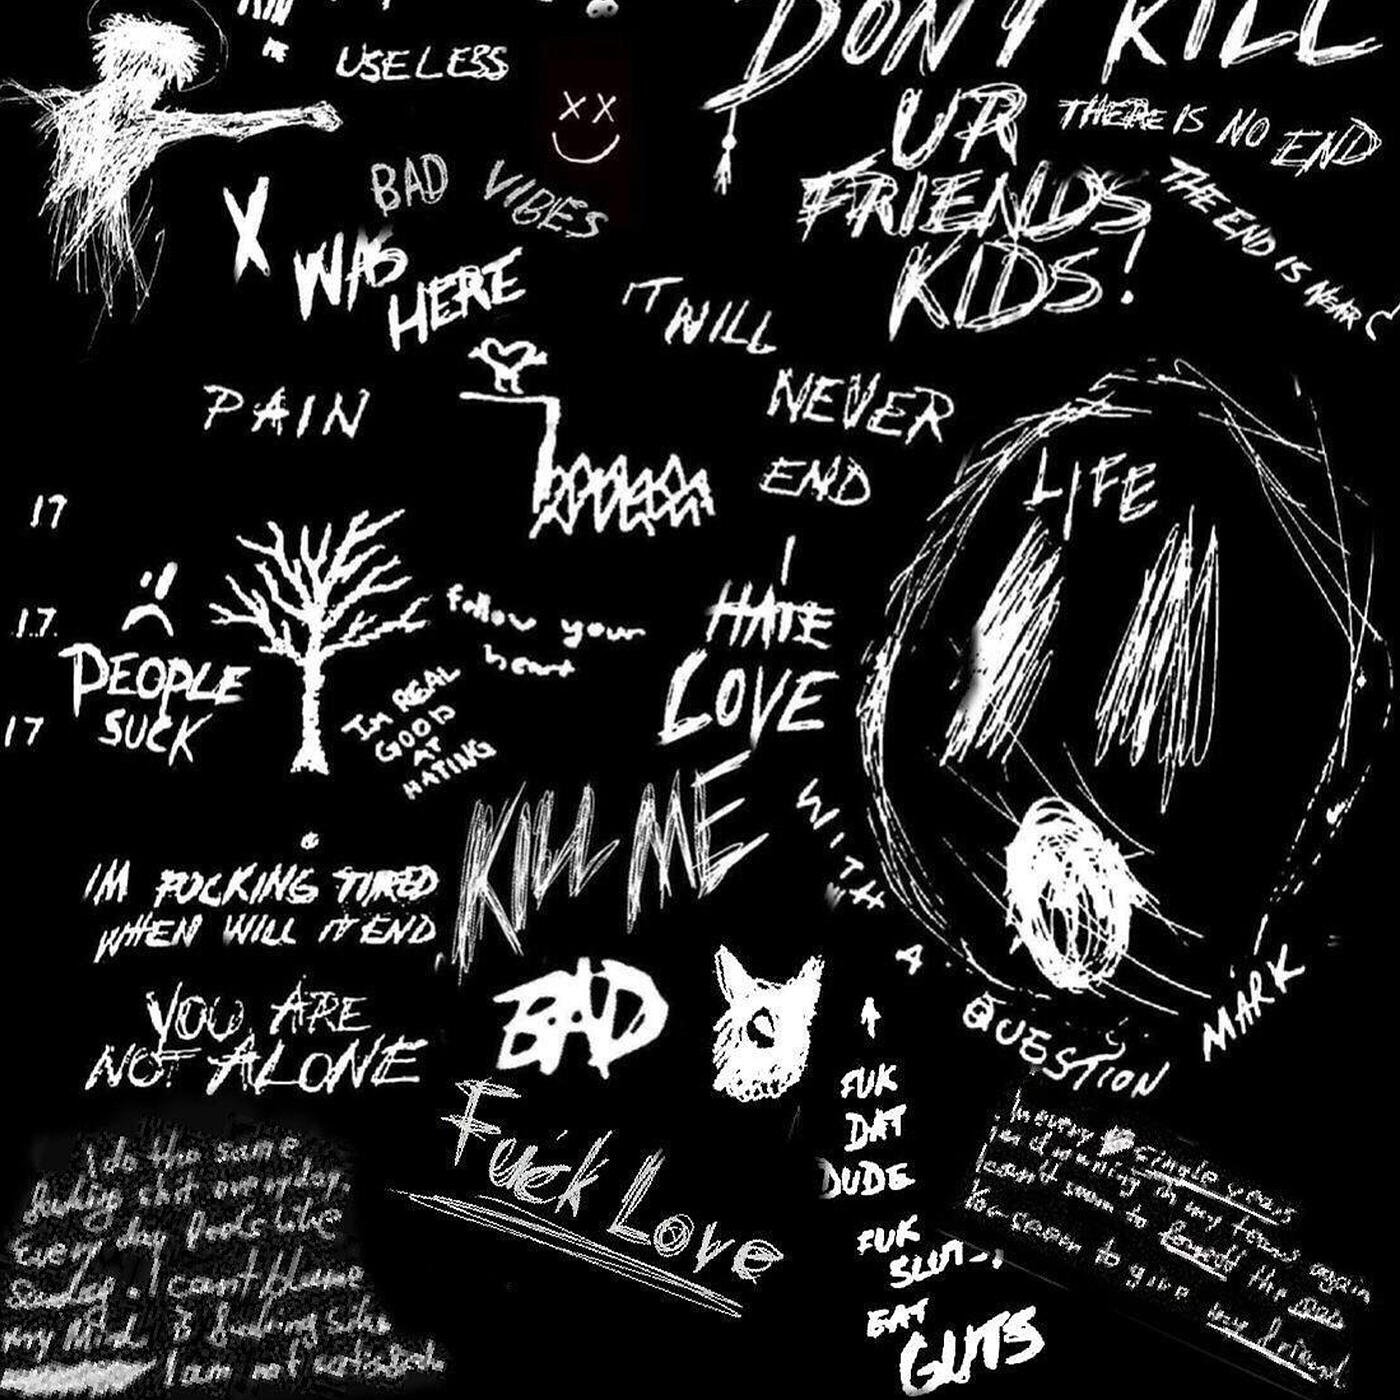 USELESS
DON'T KILL
UR
FRIENDS
KIDS!
THERE IS NO END
THE END IS NEAR
BAD VIBES
X
WAS
HERE
IT WILL
NEVER
END
PAIN
LIFE
17
17
17
PEOPLE
SUCK
follow your
heart
I
HATE
LOVE
IM REAL
GOOD
AT
HATING
KILL ME
WITH
A
QUESTION
MARK
IM FUCKING TIRED
WHEN WILL IT END
YOU ARE
NOT ALONE
BAD
Fuck Love
FUK
DAT
DUDE
FUK
SLUTS
EAT
GUTS
I do the same
fucking shit everyday
Every day feels like
Sunday. I cant blame
my Mind fucking
I am not
In every single years
I'm drowning in my tears again
I can't seem to the
You seem to give my friend